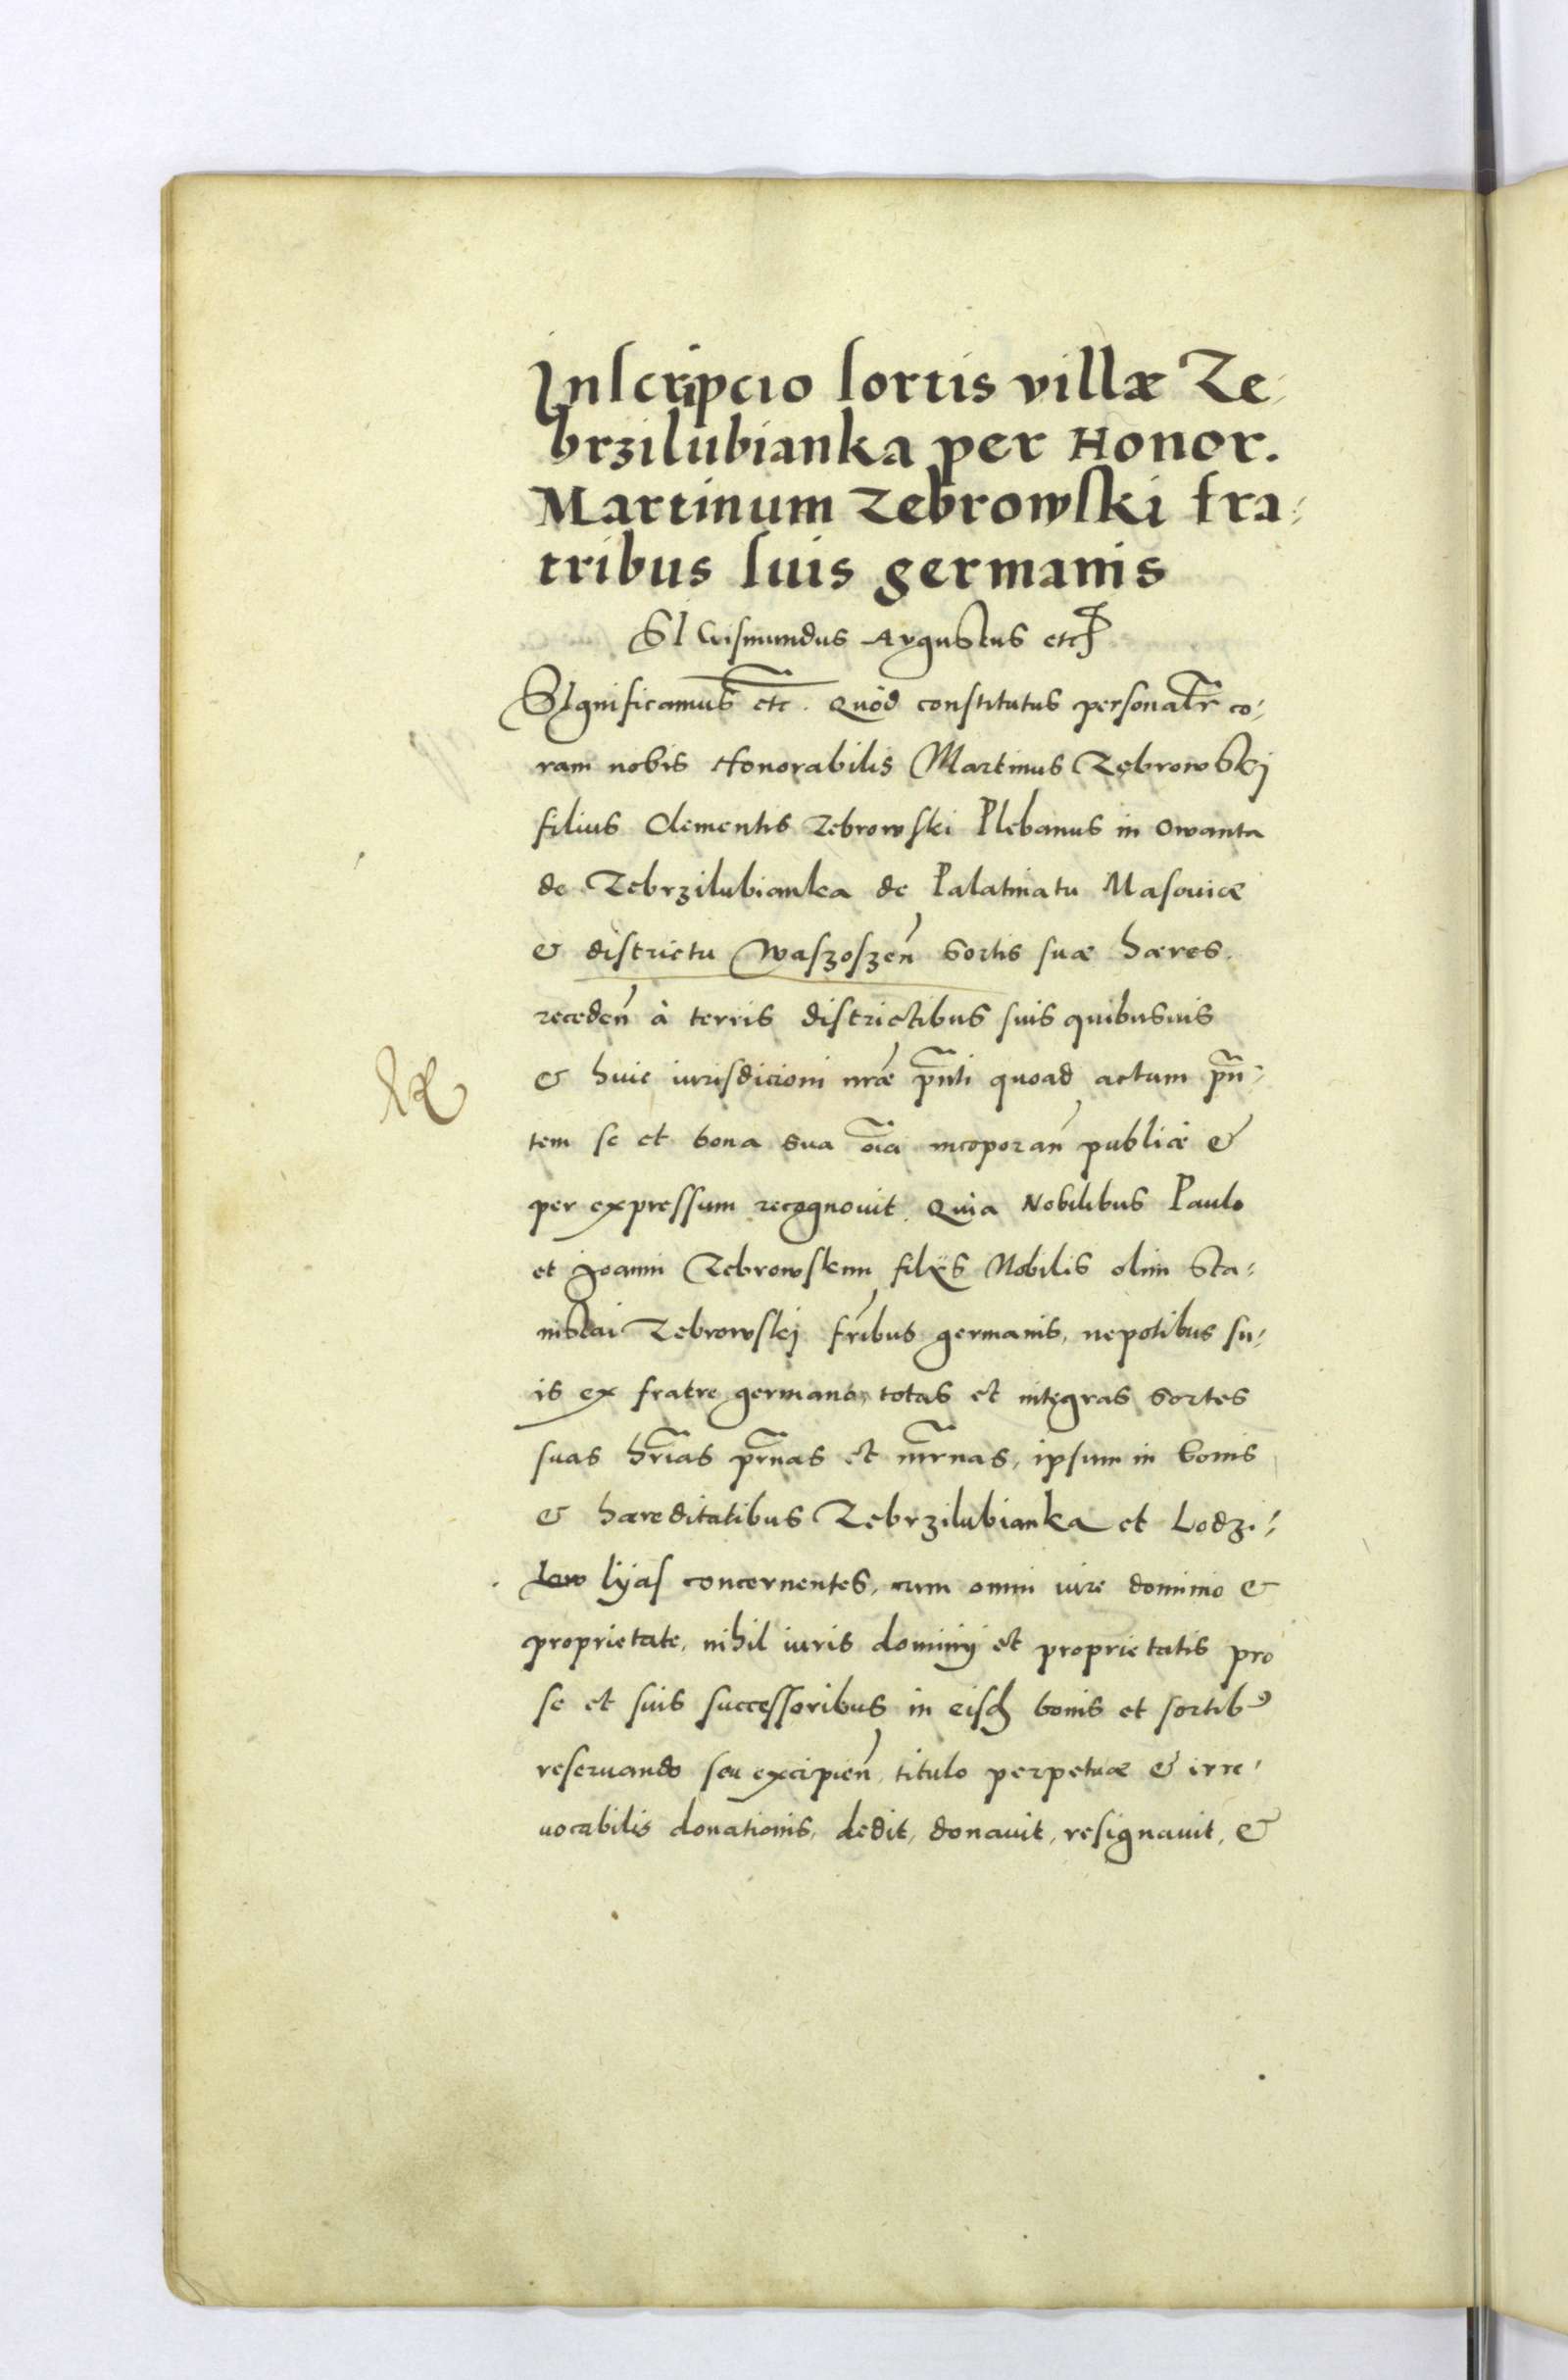 Inscripcio sortis villæ Ze,
brzilubianka per Honor.
Martinum Zebrowski fra,
tribus suis germanis
SIGismundus Augustus etc
SIgnificamus etc. Quòd constitutus personalr̃ co,
ram nobis Honorabilis Martinus Zebrowskj
filius Clementis Zebrowski Plebanus in Owanta
de Zebrzilubianka de Palatinatu Masouiæ
& districtu Waszoszen̄ sortis suæ hæres.
receden̄ à terris districtibus suis quibusuis
& huic iurisdicioni nr̃æ pñti quoad actum pñ,
tem se et bona sua oĩa incoporan̄ publicè &
per expressum recognouit. Quia Nobilibus Paulo
et Joanni Zebrowskim filijs Nobilis olim Sta,
nislai Zebrowskj fr̃ibus germanis, nepotibus su,
is ex fratre germano, totas et integras sortes
suas hr̃ias pr̃nas et mr̃nas, ipsum in bonis
& hæreditatibus Zebrzilubianka et Lodzi,
lijas concernentes, cum omni iure dominio &
proprietate, nihil iuris dominij et proprietatis pro
se et suis successoribus in eisd bonis et sortibꝰ
reseruando seu excipien̄, titulo perpetuæ & irre,
uocabilis donationis, dedit, donauit, resignauit, &